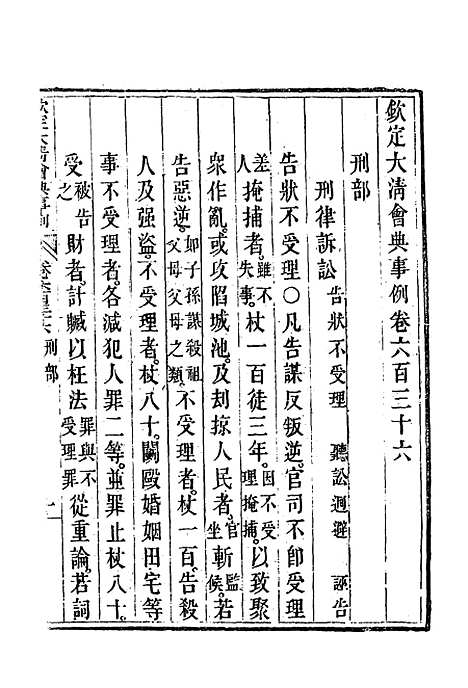 欽定大清會典事例卷六百三十六
刑部
刑律訴訟 告狀不受理 聽訟迴避 誣告
告狀不受理〇凡告謀反叛逆。官司不即受理
差人掩捕者。雖不失事。杖一百徒三年。因不受理掩捕。以致聚
衆作亂。或攻陷城池。及刦掠人民者。官坐斬監候。若
告惡逆。如子孫謀殺祖父母父母之類。不受理者。杖一百。告殺
人及强盜。不受理者。杖八十。鬭毆婚姻田宅等
事不受理者。各減犯人罪二等。並罪止杖八十。
受被告之財者。計贓以枉法罪與不受理罪從重論。若詞
刑部